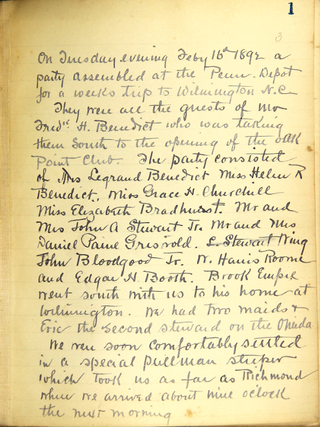 1
3
On Tuesday evening Feby 16th 1892 a
party assembled at the Penn. Depot
for a weeks trip to Wilmington N.C.
They were all the guests of Mr
Fredk. H. Benedict who was taking
them South to the opening of the Oak
Point Club. The party consisted
of Mrs Legrand Benedict Miss Helen R
Benedict, Miss Grace H. Churchill
Miss Elizabeth Bradhurst. Mr and
Mrs John A Stewart Jr. Mr and Mrs
Daniel Paine Griswold. L. Stewart Wing
John Bloodgood Jr. W. Harris Roome
and Edgar H. Booth. Brook Empie
went south with us to his home at
Wilmington. We had two maids &
Eric the second steward on the Oneida
We were soon comfortably settled
in a special pullman sleeper
which took us as far as Richmond
where we arrived about nine o'clock
the next morning